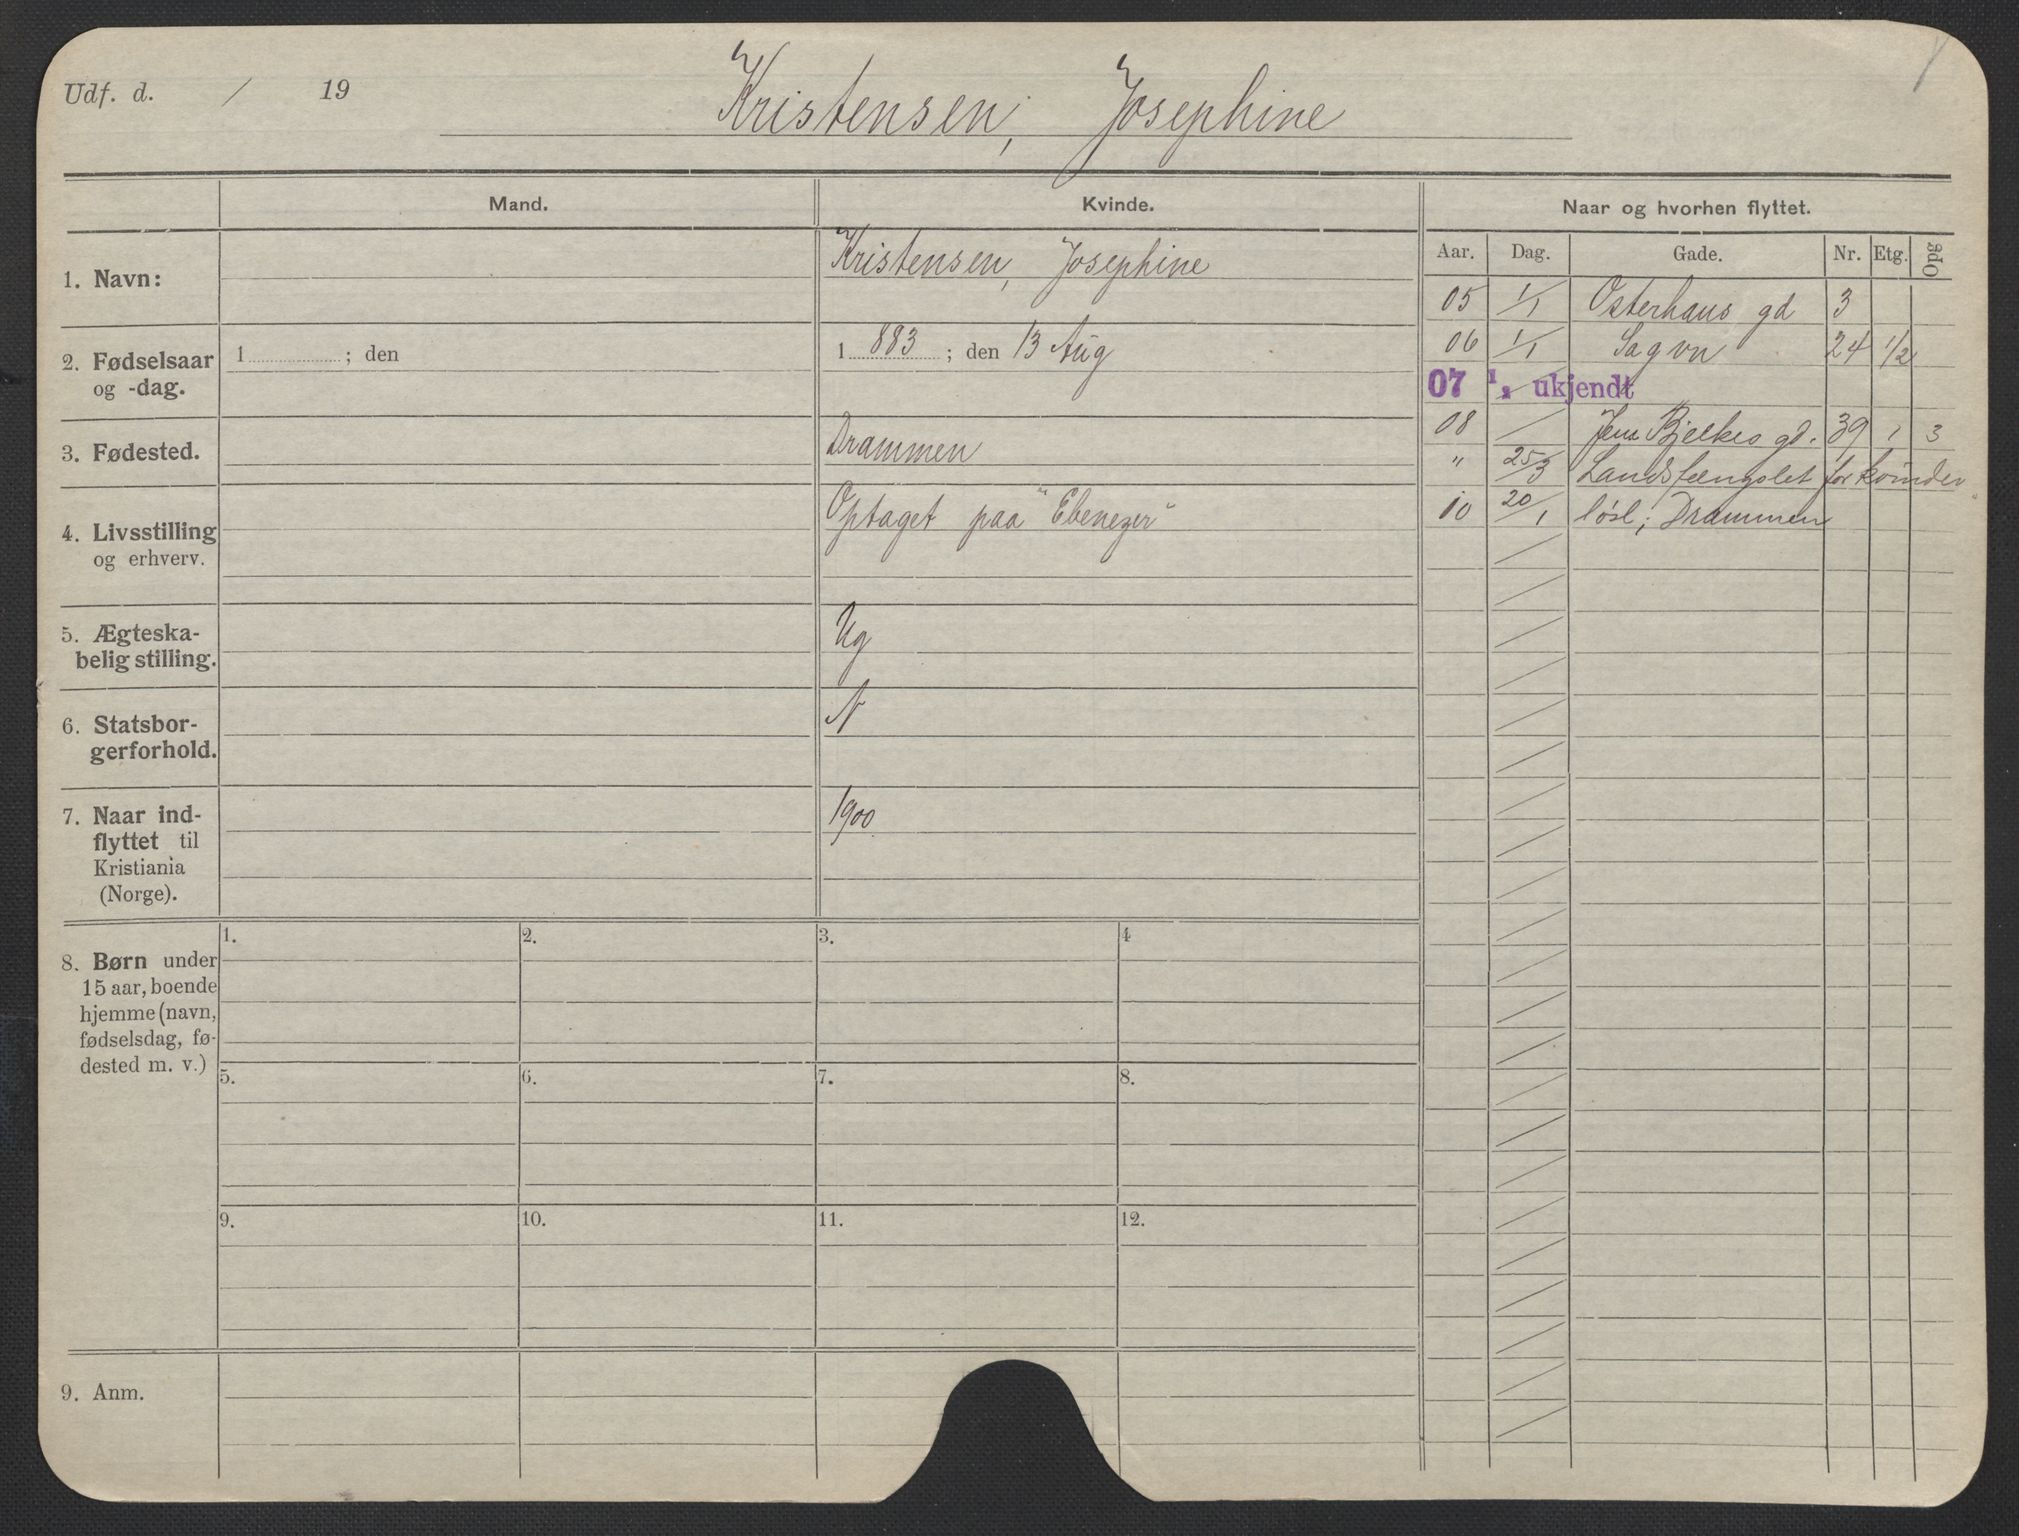 Udf. d. / 19
Kristensen, Josephine
Mand.
Kvinde.
Naar og hvorhen flyttet.
Aar. Dag. Gade. Nr. Etg. Opg
1. Navn:
Kristensen, Josephine
05 1/1 Osterhaus gd 3
2. Fødselsaar
og -dag.
1 ; den
1 883 ; den 13 Aug
06 1/1 Sagvn 24 1/2
07 ukjendt
08 / Jens Bjelkes gd. 39 1 3
3. Fødested.
Drammen
" 25/3 Landsfængslet for kvinder
4. Livsstilling
og erhverv.
Optaget paa "Ebenezer"
10 20/1 løsl; Drammen
5. Ægteska-
belig stilling.
Ug
6. Statsbor-
gerforhold.
N
7. Naar ind-
flyttet til
Kristiania
(Norge).
1900
8. Børn under
15 aar, boende
hjemme (navn,
fødselsdag, fø-
dested m. v.)
1. 2. 3. 4
5. 6. 7. 8.
9. 10. 11. 12.
9. Anm.